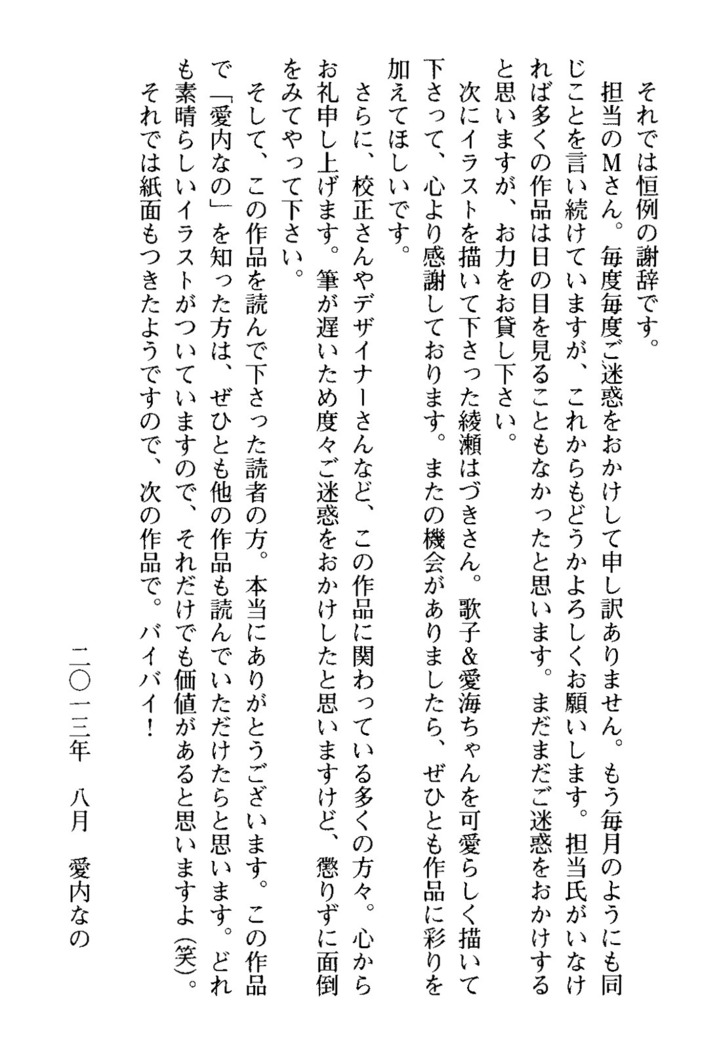 それでは恒例の謝辞です。
担当のMさん。毎度毎度ご迷惑をおかけして申し訳ありません。もう毎月のようにも同
じことを言い続けていますが、これからもどうかよろしくお願いします。担当氏がいなけ
れば多くの作品は日の目を見ることもなかったと思います。まだまだご迷惑をおかけする
と思いますが、お力をお貸し下さい。
次にイラストを描いて下さった綾瀬はづきさん。歌子&愛海ちゃんを可愛らしく描いて
下さって、心より感謝しております。またの機会がありましたら、ぜひとも作品に彩りを
加えてほしいです。
さらに、校正さんやデザイナーさんなど、この作品に関わっている多くの方々。心から
お礼申し上げます。筆が遅いため度々ご迷惑をおかけしたと思いますけど、懲りずに面倒
をみてやって下さい。
そして、この作品を読んで下さった読者の方。本当にありがとうございます。この作品
で「愛内なの」を知った方は、ぜひとも他の作品も読んでいただけたらと思います。どれ
も素晴らしいイラストがついていますので、それだけでも価値があると思いますよ(笑)。
それでは紙面もつきたようですので、次の作品で。バイバイ!
二〇一三年 八月 愛内なの